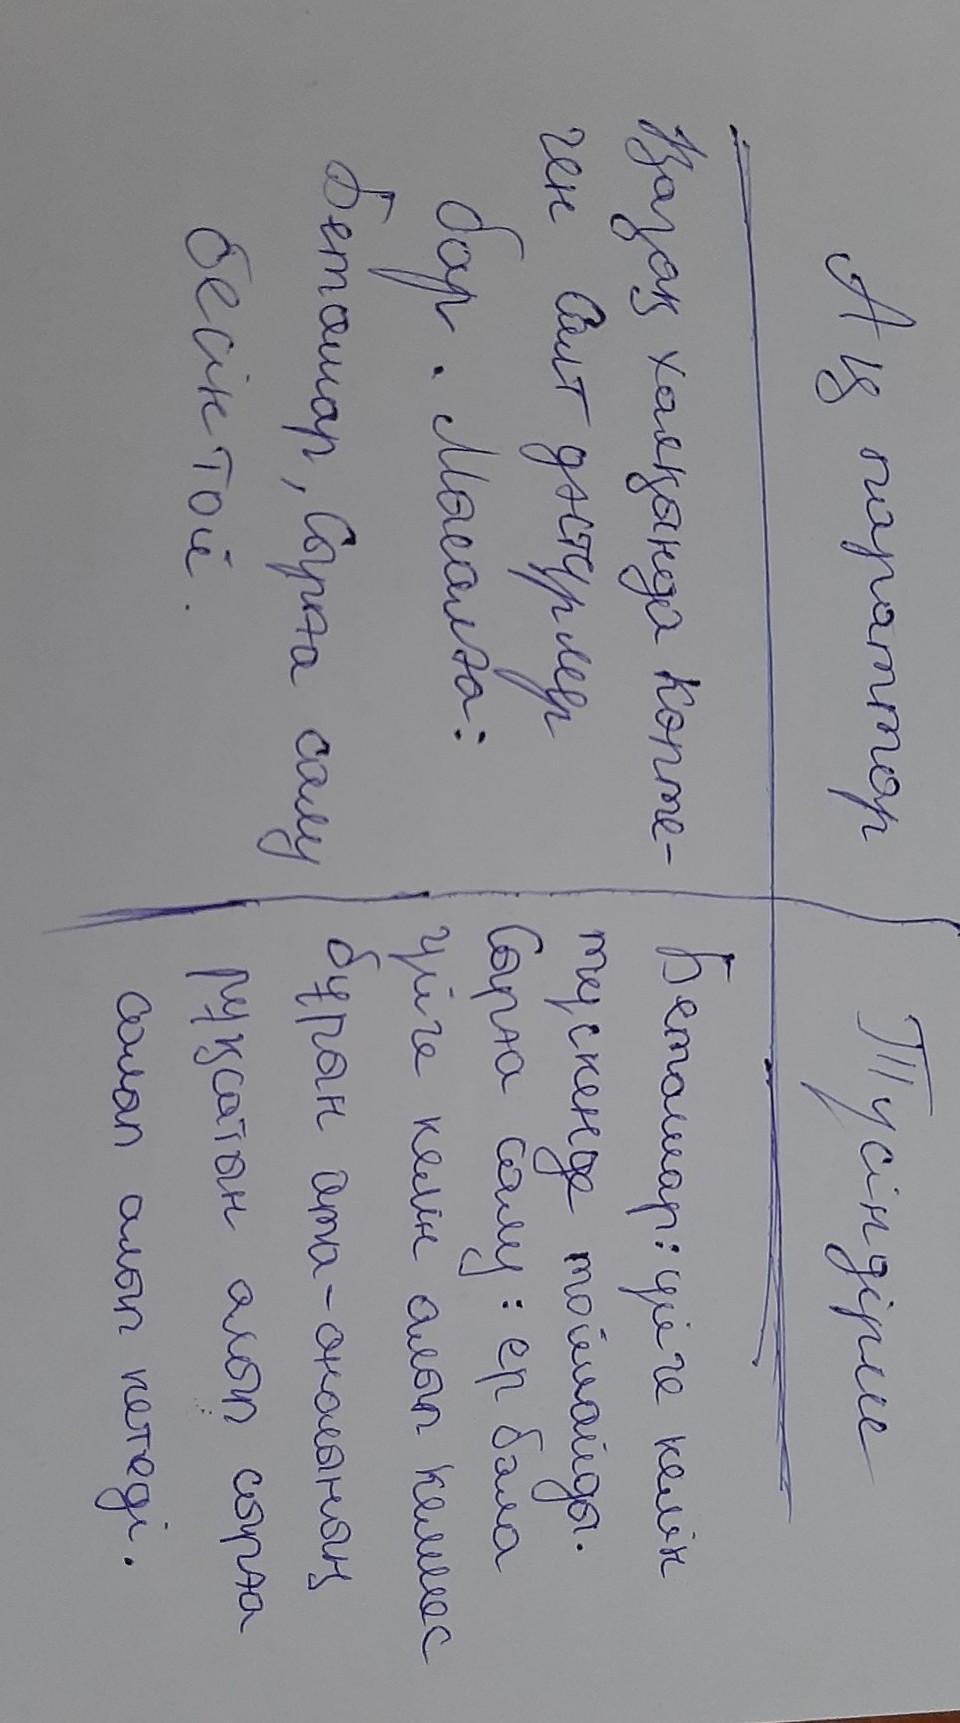 Ақпараттар
Түсіндірме
Қазақ халқында көпте-
ген салт дәстүрлер
бар. Мысалға:
Беташар, Сырға салу
бесік той.
Беташар: үйге келін
түскенде тойлайды.
Сырға салу: ер бала
үйге келін алып келмес
бұрын ата-анасының
рұқсатын алып сырға
салып алып кетеді.